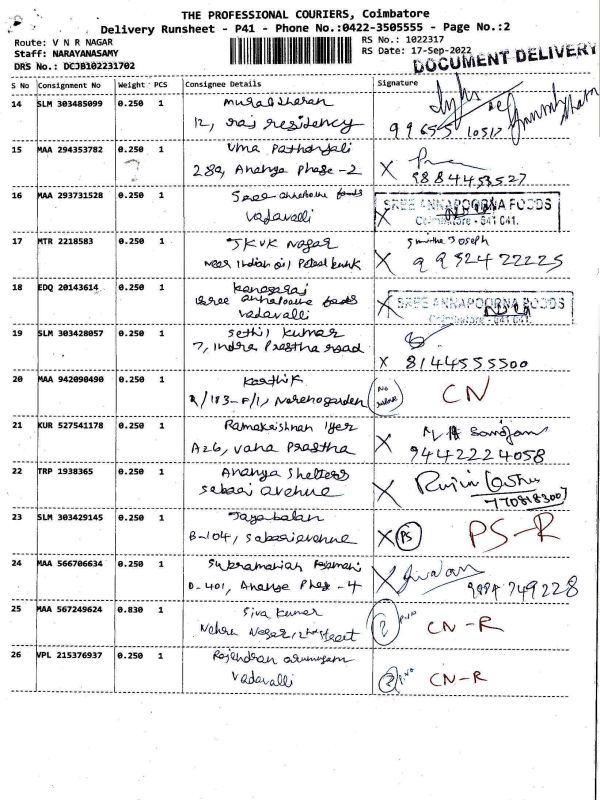 THE PROFESSIONAL COURIERS, Coimbatore
Delivery Runsheet - P41 - Phone No.:0422-3505555 - Page No.:2
Route: V N R NAGAR
RS No.: 1022317
Staff: NARAYANASAMY
RS Date: 17-Sep-2022
DRS No.: DCJB102231702
DOCUMENT DELIVERY
S No Consignment No Weight PCS Consignee Details Signature
14 SLM 303485099 0.250 1 Muralidharan
12, raj residency
99655 10517
15 MAA 294353782 0.250 1 Uma Pathanjali
289, Ananya Phase-2 X 9884453527
16 MAA 293731528 0.250 1 Sree annapoorna foods SREE ANNAPOORNA FOODS
Vadavalli X Coimbatore - 641 041.
17 MTR 2218583 0.250 1 JKVK Nagar Smitha Joseph
Near Indian oil Petrol bunk X 9992422225
18 EDQ 20143614 0.250 1 Kanagaraj
Sree annapoorna foods X SREE ANNAPOORNA FOODS
Vadavalli Coimbatore - 641 041.
19 SLM 303428057 0.250 1 Sethil Kumar
7, Indra Prastha road X 8144555500
20 MAA 942090490 0.250 1 Karthik
/183-F/1, No CN
21 KUR 527541178 0.250 1 Ramakrishnan Iyer
A26, Vana Prastha X 9442224058
22 TRP 1938365 0.250 1 Ananya Shelters
Sabari avenue X 7708183007
23 SLM 303429145 0.250 1 Jayabalan
B-104, Sabari avenue X PS PS-R
24 MAA 566706634 0.250 1 Subramanian
D-401, Ananya Phase-4 X Sivalan 9994 749228
25 MAA 567249624 0.830 1 Siva Kumar
Nehru Nagar, street ? CN-R
26 VPL 215376937 0.250 1 Rajendran arumugam
Vadavalli ? CN-R